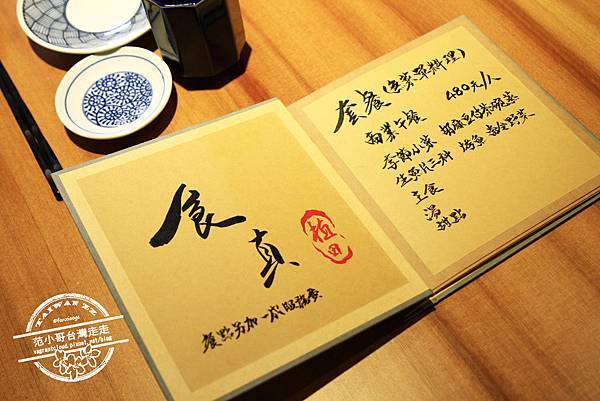 食真
植田
餐點另加一成服務費
套餐(無菜單料理)
商業午餐 480元/人
季節小菜 胡麻豆腐 茶碗蒸
生魚片三種 烤魚 野菜
主食
湯
甜點
TAIWAN ZZ
@fanusage
范小哥台灣走走
vagrantcloud.pixnet.net/blog